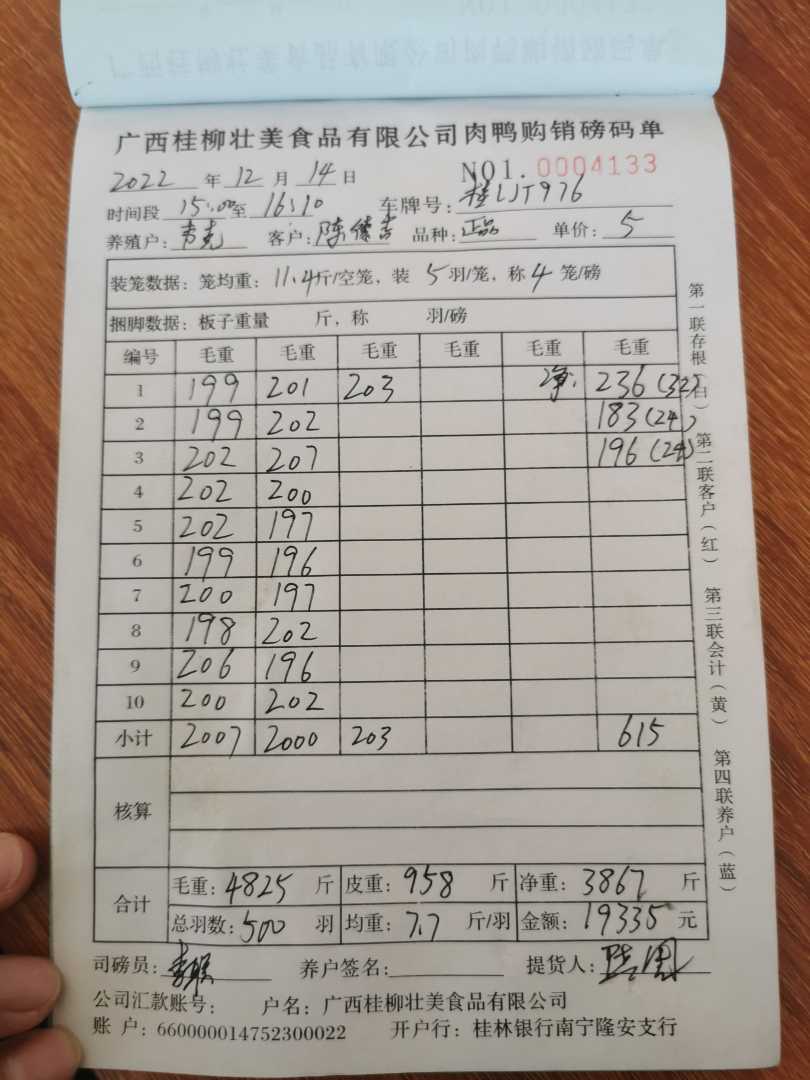 广西桂柳壮美食品有限公司肉鸭购销磅码单
2022 年 12 月 14 日 NO1. 0004133
时间段 15:00至 16:10 车牌号: 桂LJT976
养殖户: 客户: 陈 品种: 正品 单价: 5
装笼数据: 笼均重: 11.4斤/空笼, 装 5羽/笼, 称4 笼/磅
捆脚数据: 板子重量 斤, 称 羽/磅
编号 毛重 毛重 毛重 毛重 毛重 毛重
1 199 201 203 净: 236(32)
2 199 202 183(24)
3 202 207 196(24)
4 202 200
5 202 197
6 199 196
7 200 197
8 198 202
9 206 196
10 200 202
小计 2007 2000 203 615
核算
合计 毛重: 4825 斤 皮重: 958 斤 净重: 3867 斤
总羽数: 500 羽 均重: 7.7 斤/羽 金额: 19335 元
司磅员: 养户签名: 提货人:
公司汇款账号: 户名: 广西桂柳壮美食品有限公司
账 户: 660000014752300022 开户行: 桂林银行南宁隆安支行
第一联存根(白) 第二联客户(红) 第三联会计(黄) 第四联养户(蓝)